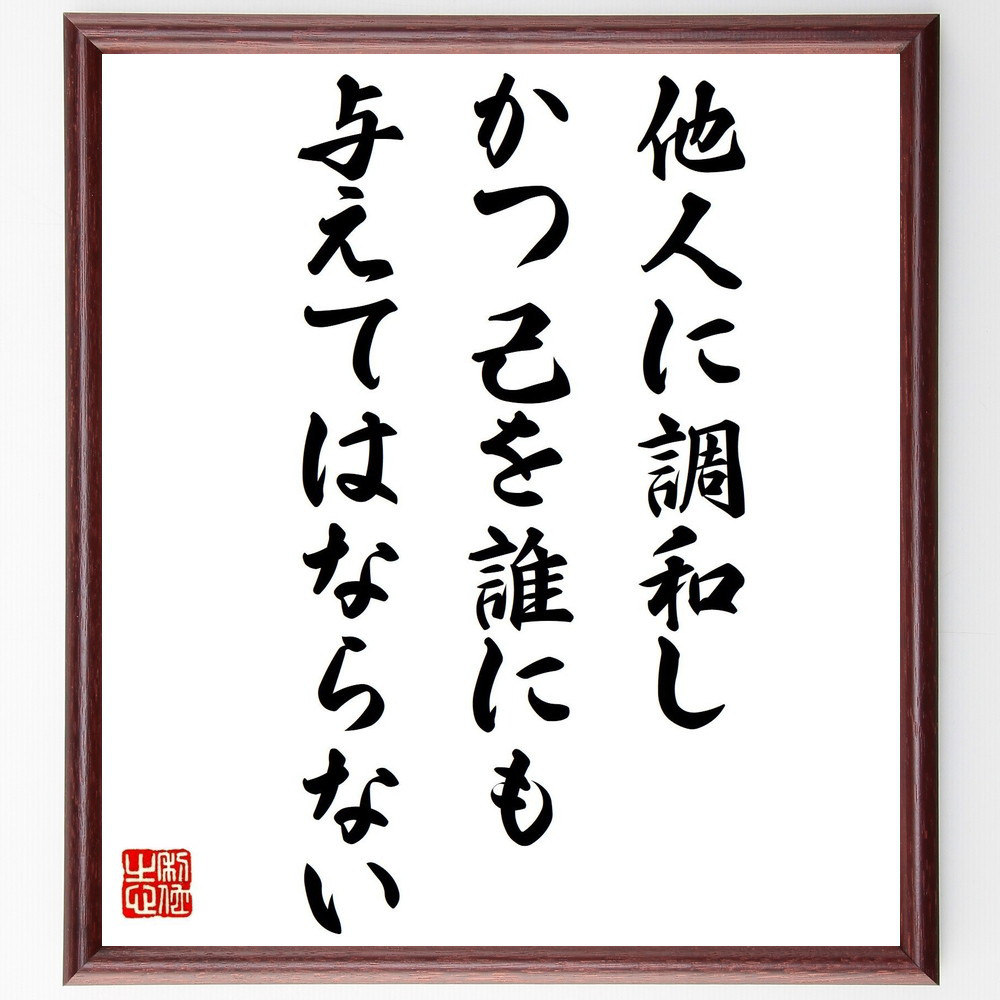 他人に調和し
かつ己を誰にも
与えてはならない